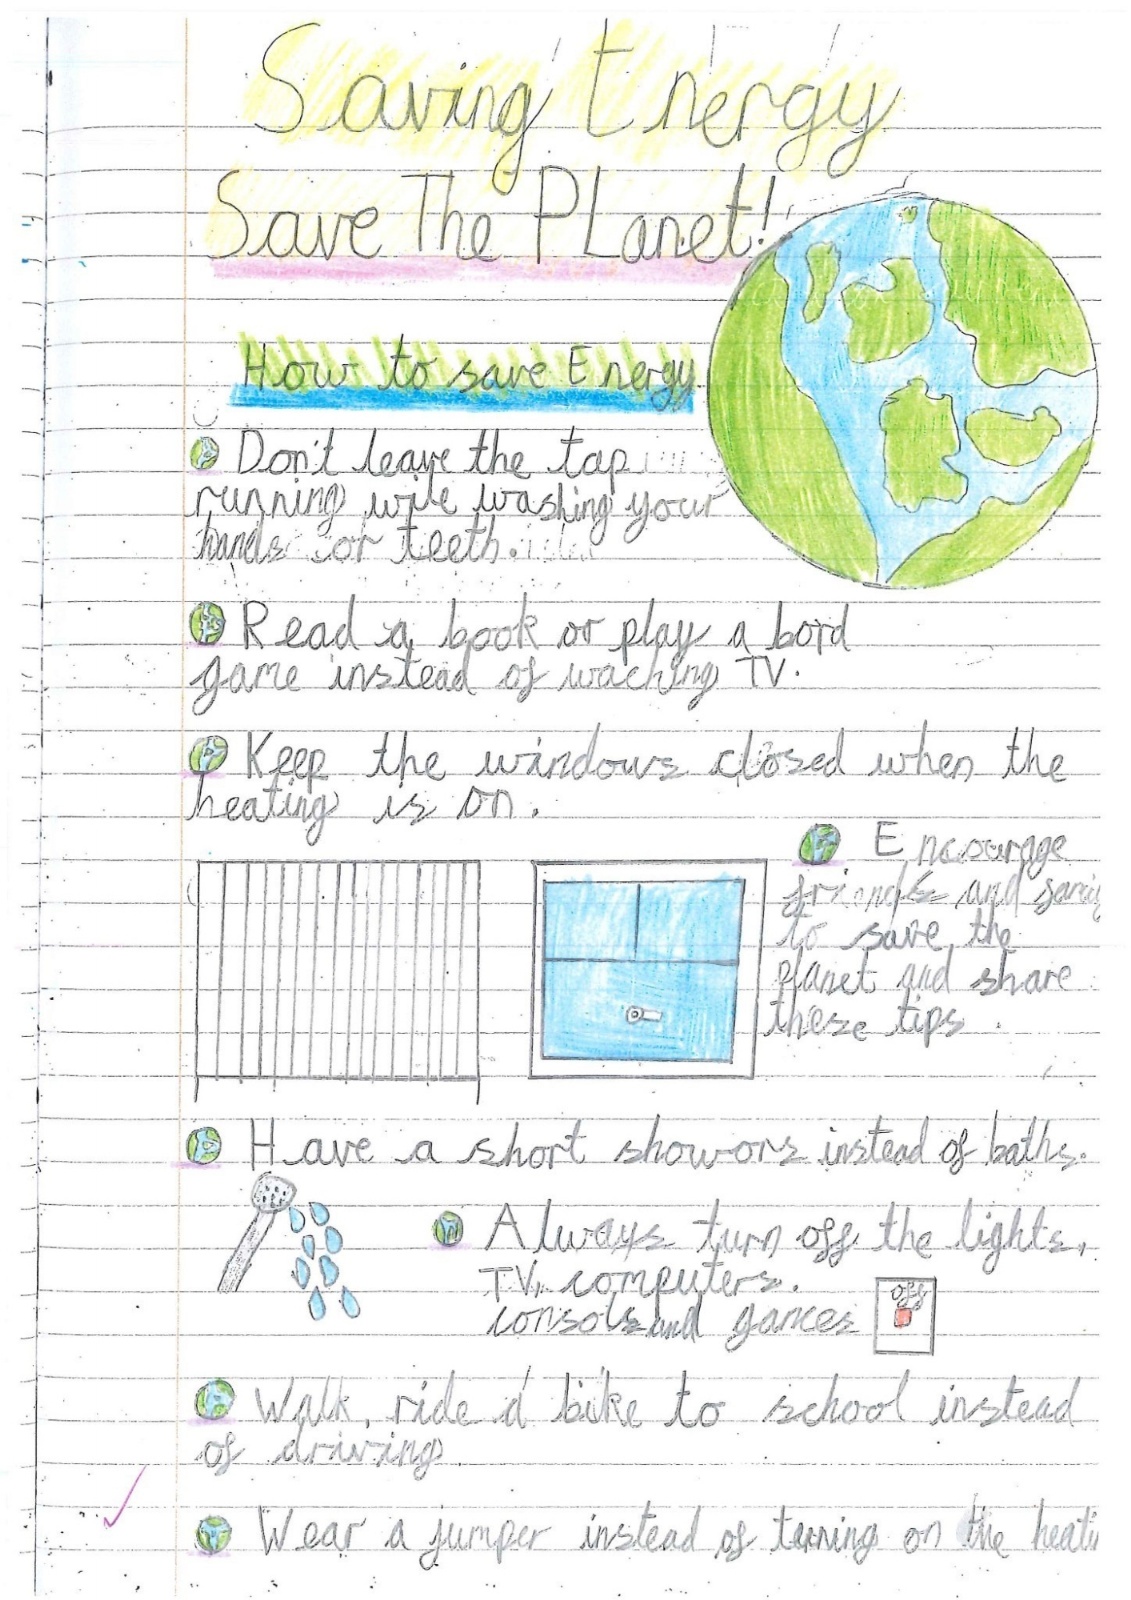 Saving Energy
Save The PLanet!
How to save Energy
Don't leave the tap
running wile washing your
hands or teeth.
Read a book or play a bord
game instead of waching TV.
Keep the windows closed when the
heating is on.
Encourage
friends and
to save the
planet and share
these tips.
Have a short showors instead of baths.
Always turn off the lights,
TV, computers.
consols and games
off
Walk, ride a bike to school instead
of driving.
Wear a jumper instead of terning on the heati